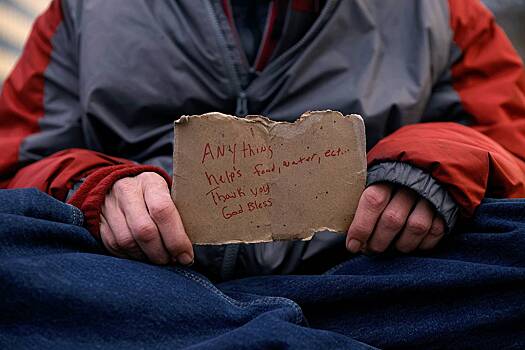 ANything
helps food, water, ect...
Thank you
God Bless